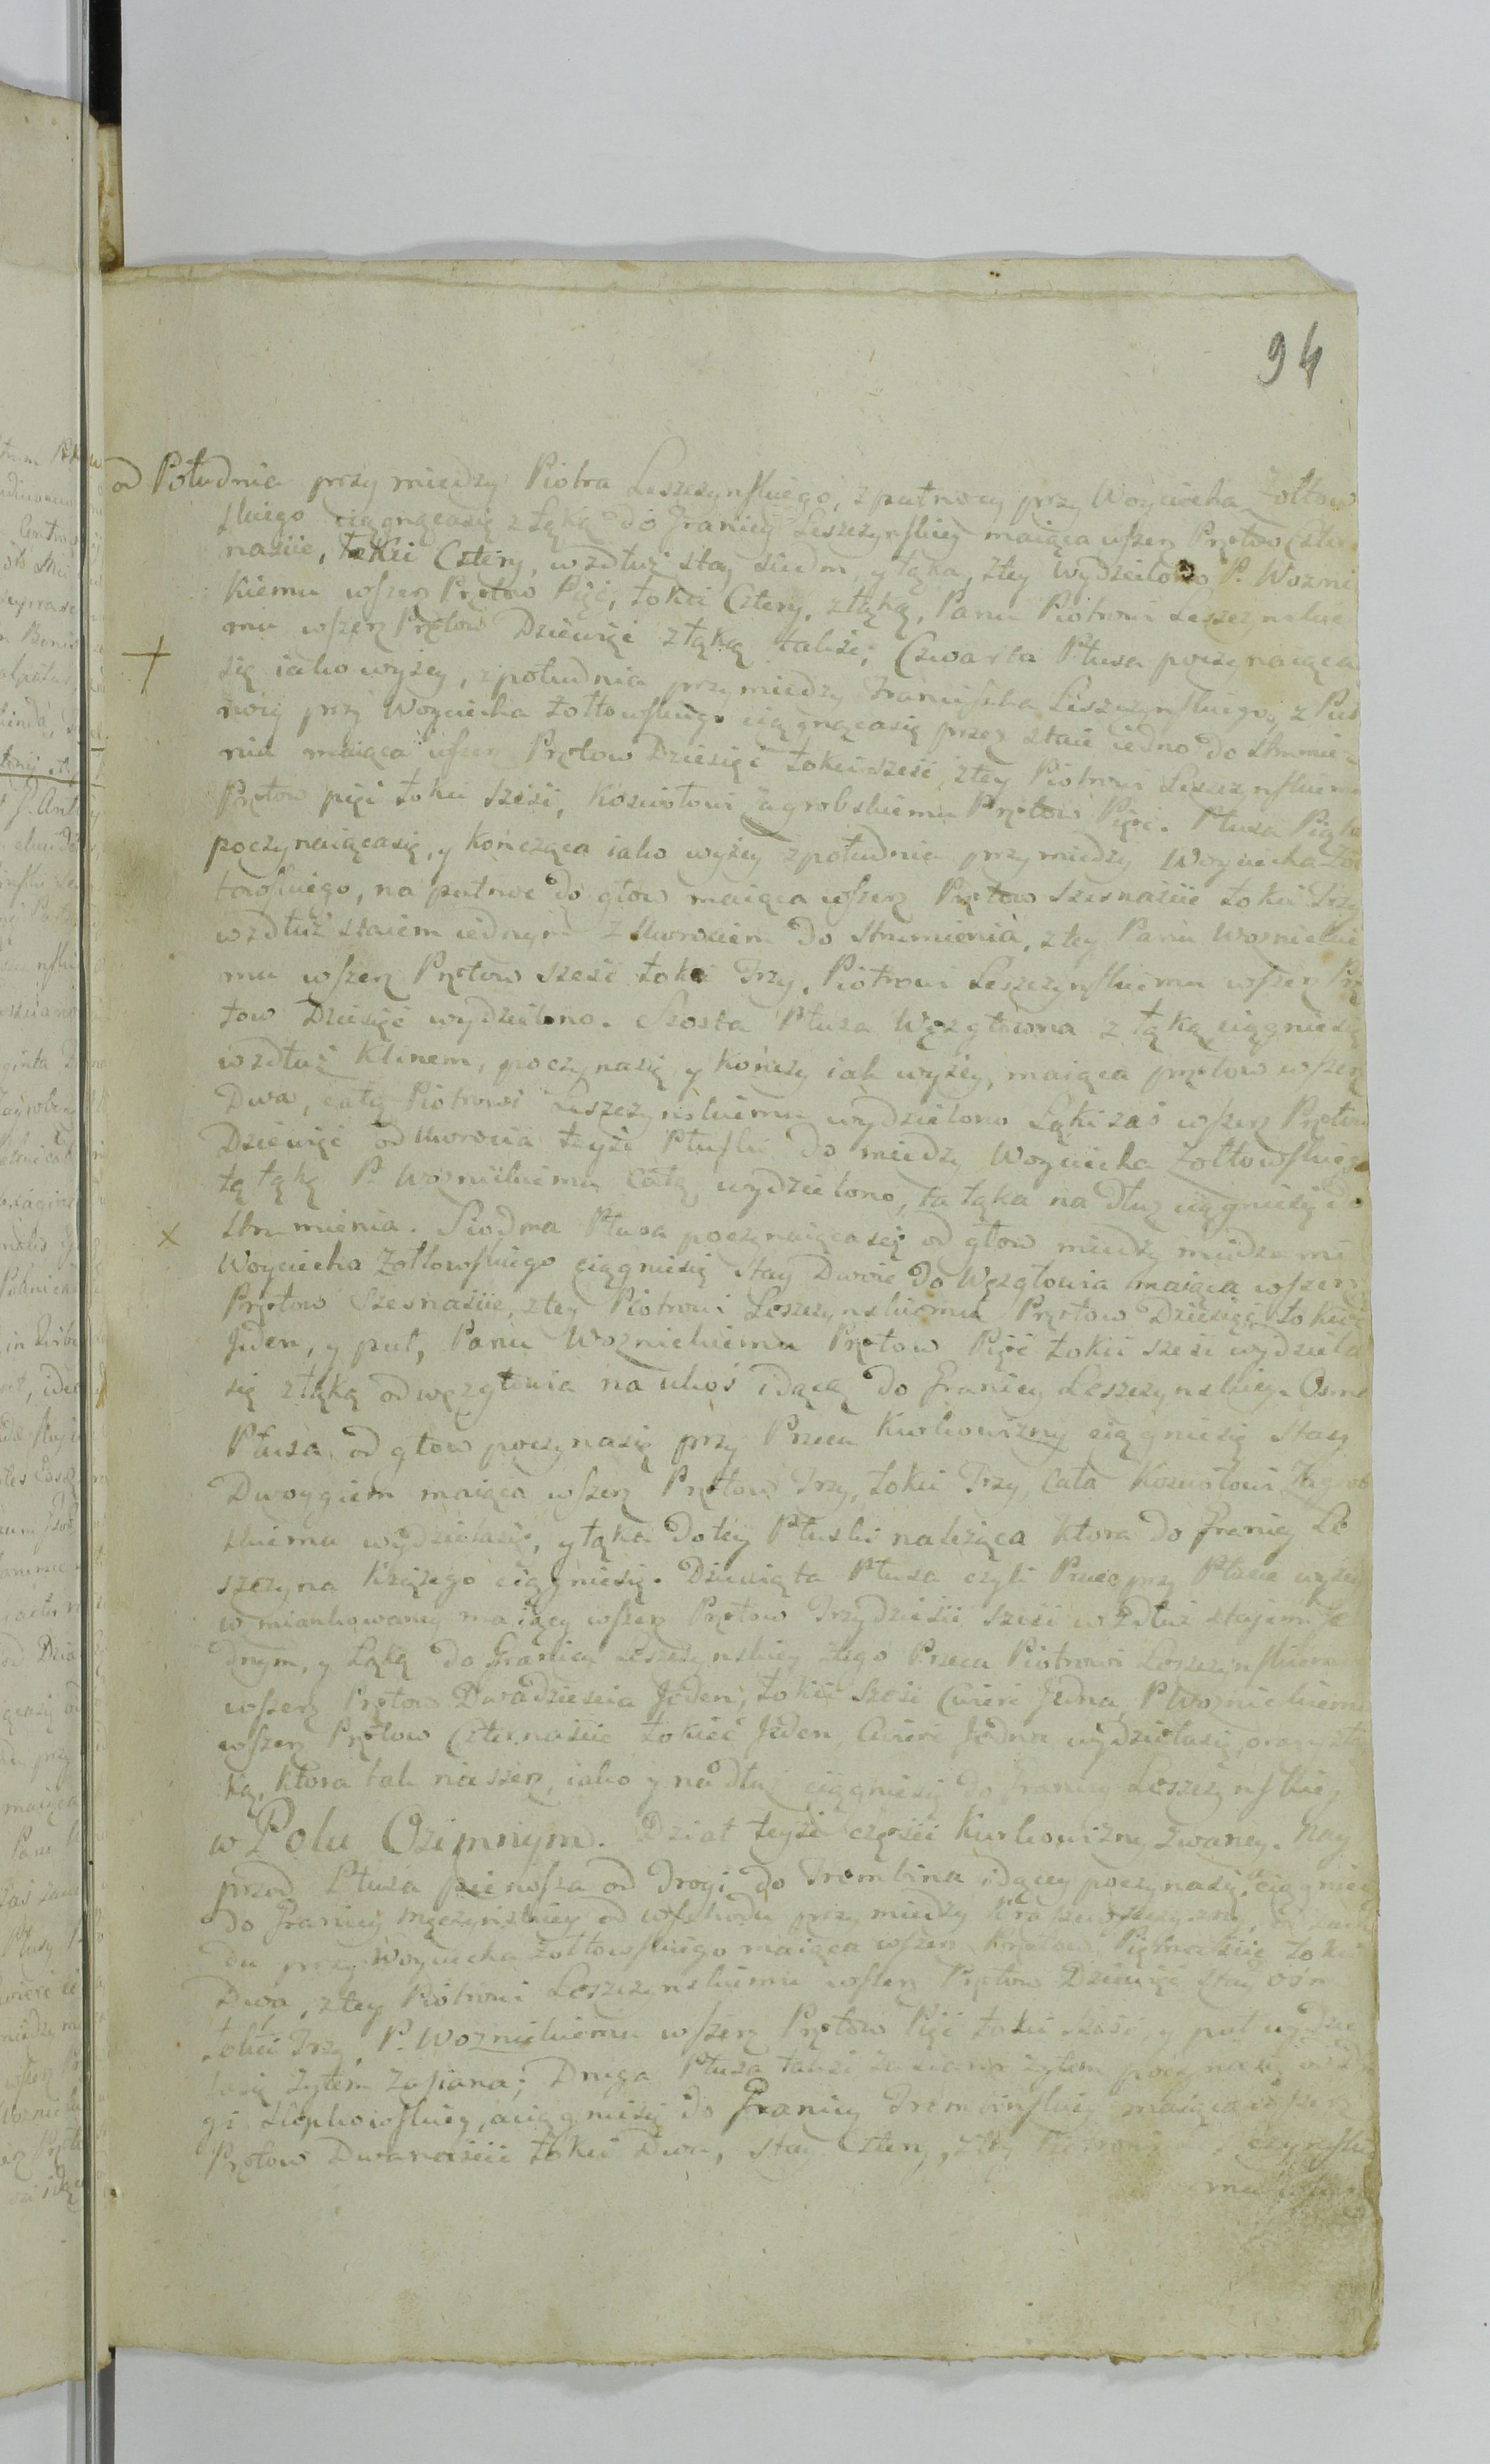 94
od Południa przy miedzy Piotra Leszczynskiego, z pułnocy przy Woyciecha Żołtow
skiego ciągnącasię z Łąką do Granicy Leszczynskiey maiąca wszerz Prętow Czter
naście, Łokci Cztery, wzdłuż stay siedm, y łąka, ztey wydzielono P. Wozni
kiemu wszerz Prętow Pięć, Łokci Cztery, złąką, Panu Piotrowi Leszczynskie
mu wszerz Prętow Dziewięć złąką także; Czwarta Płusa poczynaiąca
się iako wyżey, zpołudnia przy miedzy Franciszka Leszczynskiego, z Puł
nocy przy Woyciecha Żołtowskiego ciągnącasię przez staie iedno do strumie
nia maiąca wszerz Prętow Dziesięć Łokci sześć, ztey Piotrowi Leszczynskiemu
Prętow pięć Łokci sześć, Kozułowi Zagrobskiemu Prętow Pięć. Płusa Piąta
poczynaiącasię, y kończąca iako wyżey zpołudnia przy miedzy Woyciecha Żoł
towskiego, na pułnoc do głow maiąca wszerz Prętow szesnaście Łokci Trzy
wzdłuż staiem iednym z uwrociem do strumienia, ztey Panu Woznickie
mu wszerz Prętow sześć Łokci Trzy, Piotrowi Leszczynskiemu wszerz Prę
tow Dziesięć wydzielono. Szosta Płusa Węzgłowna z łąką ciągniesię
wzdłuż Klinem, poczynasię y kończy iak wyżey, maiąca prętow wszerz
Dwa, całą Piotrowi Leszczynskiemu wydzielono Łąki zaś wszerz Prętow
Dziewięć od uwrocia teyże Płuski do miedzy Woyciecha Żołtowskiego
tą łąką P. Woznickiemu całą wydzielono, ta łąka na dłuż ciągniesię do
strumienia. Siodma Płusa poczynaiącasię od głow miedzy miedzami
Woyciecha Żołtowskiego ciągniesię stay Dwoie do Węzgłowia maiąca wszerz
Prętow Szesnaście, ztey Piotrowi Leszczynskiemu Prętow Dziesięć Łokieć
Jeden, y puł, Panu Woznickiemu Prętow Pięć Łokci sześć wydziela
się złąką odwęzgłowia na ukoś idącą do Granicy Leszczynskiey. Osma
Płusa od głow poczynasię przy Przecu Kurkowizny ciągniesię stay
Dwoygiem maiąca wszerz Prętow Trzy, Łokci Trzy, cała Kozułowi Zagrob
skiemu wydzielasię, y łąka dotey Płuski należąca ktora do Granicy Le
szczyna Xiążego ciągniesię. Dziewiąta Płusa czyli Przec przy Płusie wyżey
wmiankowaney maiący wszerz Prętow Trzydzieści sześć wzdłuż stajem Je
dnym, y Łąką do Granicy Leszczynskiey ztego Przeca Piotrowi Leszczynskiemu
wszerz Prętow Dwadzieścia Jeden, Łokci sześć Cwierć Jedna, P. Woznickiemu
wszerz Prętow Czternaście Łokieć Jeden, Cwierć Jedna wydzielasię, oraz y złą
ką, ktora tak na szerz, iako y na dłuż ciągniesię do Granicy Leszczynskiey
w Polu Ozimnym. Dział teyże części Kurkowizny zwaney. Nay
przod Płusa pierwsza od Drogi do Trembina idącey poczynasię, ciągnie
do Granicy od wschodu przy miedzy
du przy Woyciecha Żołtowskiego maiąca wszerz Prętow Piętnaście Łokci
Dwa, ztey Piotrowi Leszczynskiemu wszerz Prętow Dziewięć stay ośm
Łokci Trzy, P. Woznickiemu wszerz Prętow Pięć Łokci sześć, y puł wydzie
lasię żytem zasiana; Druga Płusa także zasiana żytem poczynasię od Dro
gi Słepkowskiey, aciągniesię do Granicy Trembinskiey maiąca wszerz
Prętow Dwanaście Łokci Dwa, stay Cztery, ztey Piotrowi Leszczynskie
mu wszerz